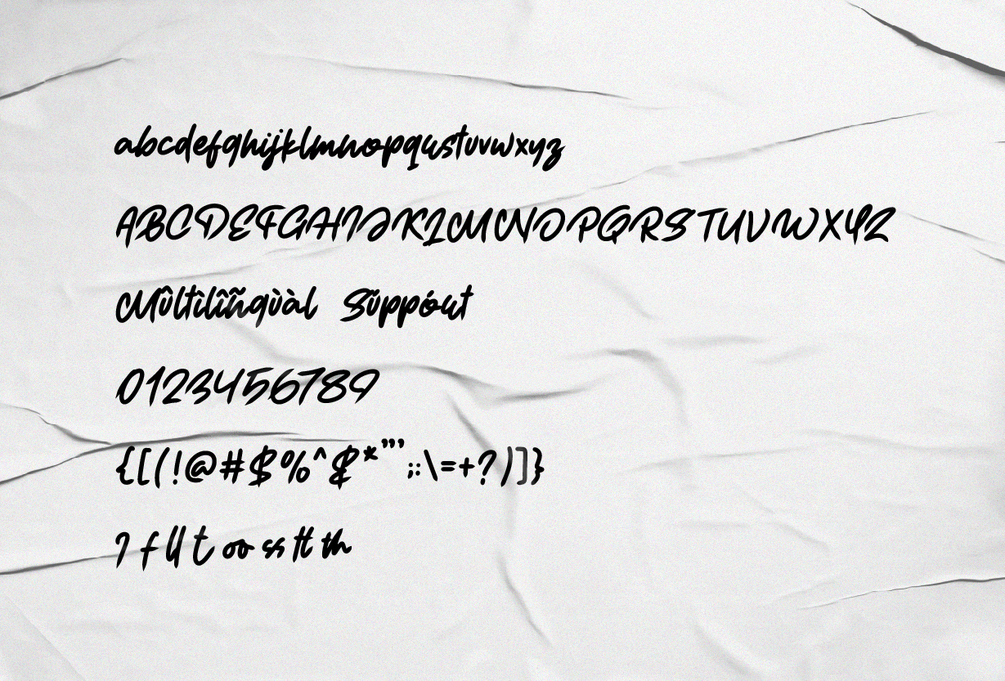 abcdefghijklmnopqustuvwxyz
ABCDEFGHIJKLMNOPQRSTUVWXYZ
Mûltilîñgùàl Sũppóut
0123456789
{[(!@#$%^&*"',;:\=+?)]}
I f ll t oo ss tt th